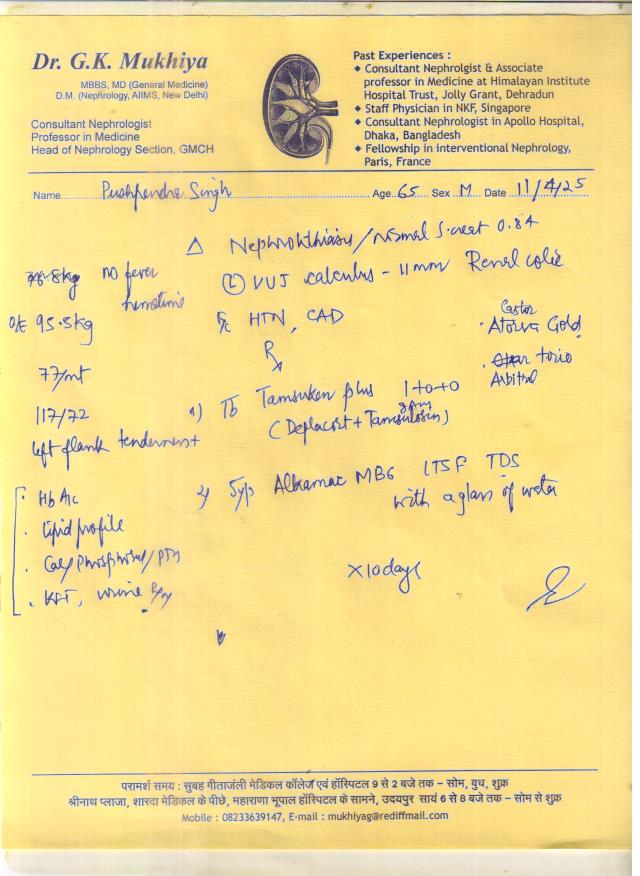 Dr. G.K. Mukhiya
MBBS, MD (General Medicine)
D.M. (Nephrology, AIIMS, New Delhi)
Consultant Nephrologist
Professor in Medicine
Head of Nephrology Section, GMCH
Past Experiences :
◆ Consultant Nephrolgist & Associate
professor in Medicine at Himalayan Institute
Hospital Trust, Jolly Grant, Dehradun
◆ Staff Physician in NKF, Singapore
◆ Consultant Nephrologist in Apollo Hospital,
Dhaka, Bangladesh
◆ Fellowship in interventional Nephrology,
Paris, France
Name Pushpendra Singh Age 65 Sex M Date 11/4/25
Δ Nephrolithiasis / normal S. creat 0.84
no fever
(L) VUJ calculus - 11mm Renal colic
O/E 95.5kg
HTN, CAD
Atorva Gold
Rx
77/mt
117/72
1) Tb Tamsuken plus 1+0+0
(Deflacort + Tamsulosin)
left flank tenderness +
2) Syp Alkamac MB6 1TSF TDS
with a glass of water
HbA1c
lipid profile
Cal/Phosphorus/PTH
KFT, urine R/M
x10days
परामर्श समय : सुबह गीतांजली मेडिकल कॉलेज एवं हॉस्पिटल 9 से 2 बजे तक – सोम, बुध, शुक्र
श्रीनाथ प्लाजा, शारदा मेडिकल के पीछे, महाराणा भूपाल हॉस्पिटल के सामने, उदयपुर सायं 6 से 8 बजे तक – सोम से शुक्र
Mobile : 08233639147, E-mail : mukhiyag@rediffmail.com